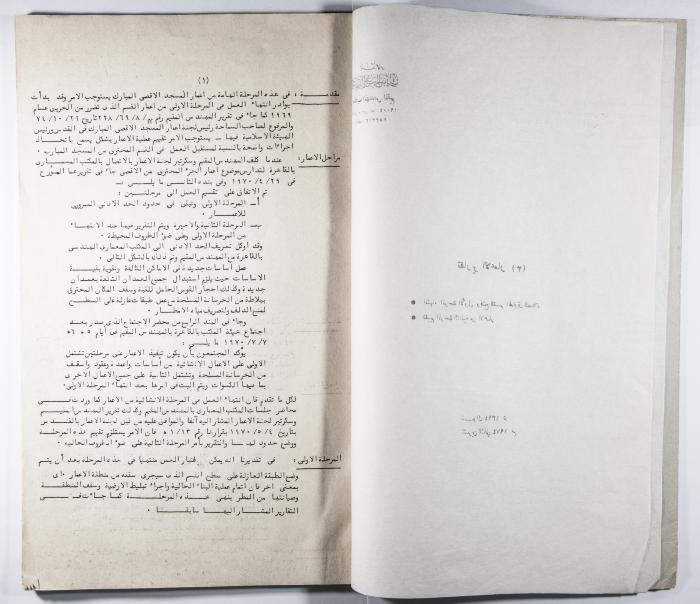 (١)
مقدمة : في هذه المرحلة الهامة من اعمار المسجد الاقصى المبارك يستوجب الامر وقد بدأت
بوادر انتهاء العمل في المرحلة الاولى من اعمار القسم الذي تضرر من الحريق عام
١٩٦٩ كما جاء في تقرير المهندس المقيم رقم م/٨/٦٩/٢٢٨ تاريخ ٢٦/١٠/٧٤
والمرفوع لصاحب السماحة رئيس لجنة اعمار المسجد الاقصى المبارك في القدس ورئيس
الهيئة الاسلامية فيها ــ يستوجب الامر تقييم عملية الاعمار بشكل يسمح باتخاذ
اجراءات واضحة بالنسبة لمستقبل العمل في القسم المحترق من المسجد المبارك .
مراحل الاعمار: عندما كلف المهندس المقيم وسكرتير لجنة الاعمار بالاتصال بالمكتب المعماري
بالقاهرة لتدارس موضوع اعمار الجزء المحترق من الاقصى جاء في تقريرهما المؤرخ
في ٢٩/٤/١٩٧٠ وفي بنده الثاني ما يلي ــ
تم الاتفاق على تقسيم العمل الى مرحلتين :
أ ــ المرحلة الاولى وتبقى في حدود الحد الادنى الضروري
للاعمار .
ب ــ المرحلة الثانية والاخيرة ويتم التقرير فيها عند الانتهاء
من المرحلة الاولى وعلى ضوء الظروف المحيطة .
وقد اوكل تعريف الحد الادنى الى المكتب المعماري الهندسي
بالقاهرة مع المهندس المقيم وتم ذلك بالشكل التالي :
عمل أساسات جديدة في الاماكن التالفة وتقوية بقية
الاساسات حيث يلزم استبدال جميع العمدان التالفة بعمدان
جديدة وكذلك احجار القوس الحامل للقبة وسقف المكان المحترق
ببلاطة من الخرسانة المسلحة مع عمل طبقات عازلة على السطح
لمنع الدلف ولتصريف مياه الامطار .
وجاء في البند الرابع من محضر الاجتماع الذي صدر بعد
اجتماع هيئة المكتب بالقاهرة بالمهندس المقيم في أيام ٥ ، ٦ ،
٧/٧/١٩٧٠ ما يلي :
يؤكد المجتمعون بأن يكون تنفيذ الاعمار على مرحلتين تشتمل
الاولى على الاعمال الانشائية من أساسات واعمدة وعقود وأسقف
من الخرسانة المسلحة وتشتمل الثانية على جميع الاعمال الاخرى
بما فيها الكسوات ويتم البت في امرها بعد انتهاء المرحلة الاولى .
لكل ما تقدم فان انتهاء العمل في المرحلة الانشائية من الاعمار كما وردت في
محاضر جلسات المكتب المعماري بالمهندس المقيم وكذلك تقرير المهندس المقيم
وسكرتير لجنة الاعمار المشار اليه آنفا والموافق عليه من قبل لجنة الاعمار بالقدس
بتاريخ ٤/٥/١٩٧٠ بقرارها رقم ١/١٣ هـ فان الامر يستلزم تقييم هذه المرحلة
ووضع حدود لها والتقرير بأمر المرحلة الثانية على ضوء الظروف الحالية .
المرحلة الاولى: في تقديرنا انه يمكن اعتبار العمل منتهيا في هذه المرحلة بعد أن يتم
وضع الطبقة العازلة على سطح القسم الذي سيجري سقفه من منطقة الاعمار
بمعنى آخر فان اتمام عملية البناء الحالية واجراء تبليط الارضية وسقف المنطقة
وصيانتها من المطر ينهي هذه المرحلة كما جاءت في
التقارير المشار اليها سابقا .